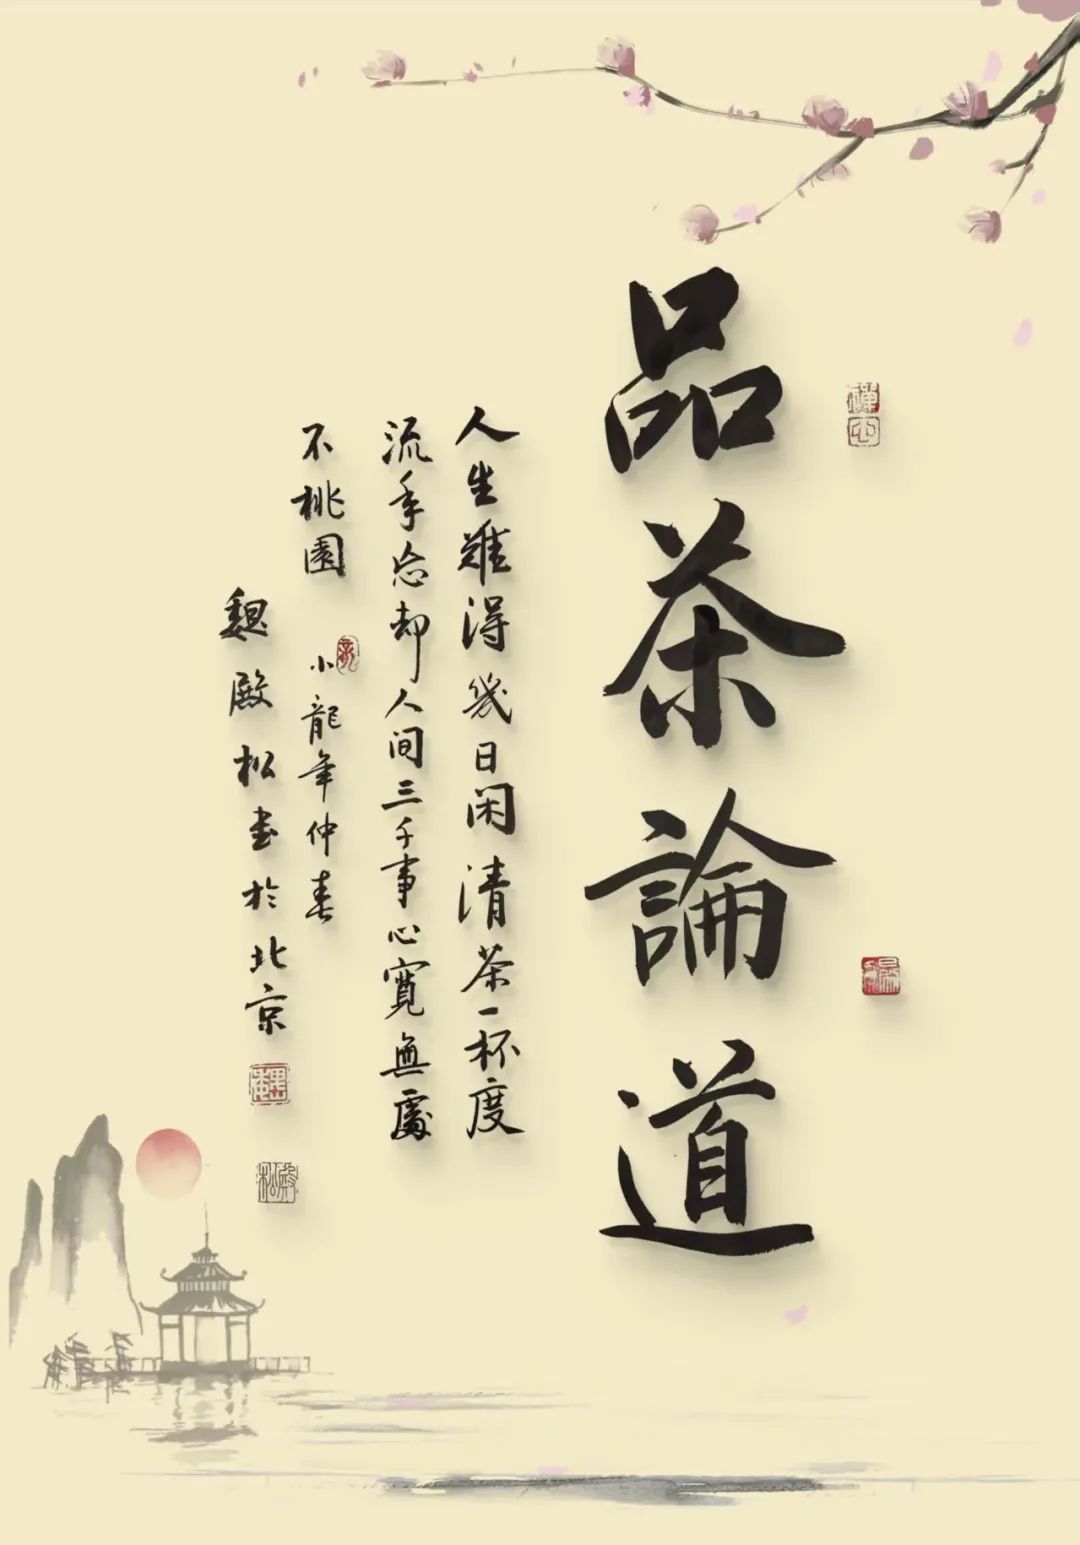 品茶論道
人生難得幾日闲清茶一杯度
流年忘却人间三千事心寬無處
不桃園
小龍年仲春
魏殿松书於北京
禅心
魏
殿松